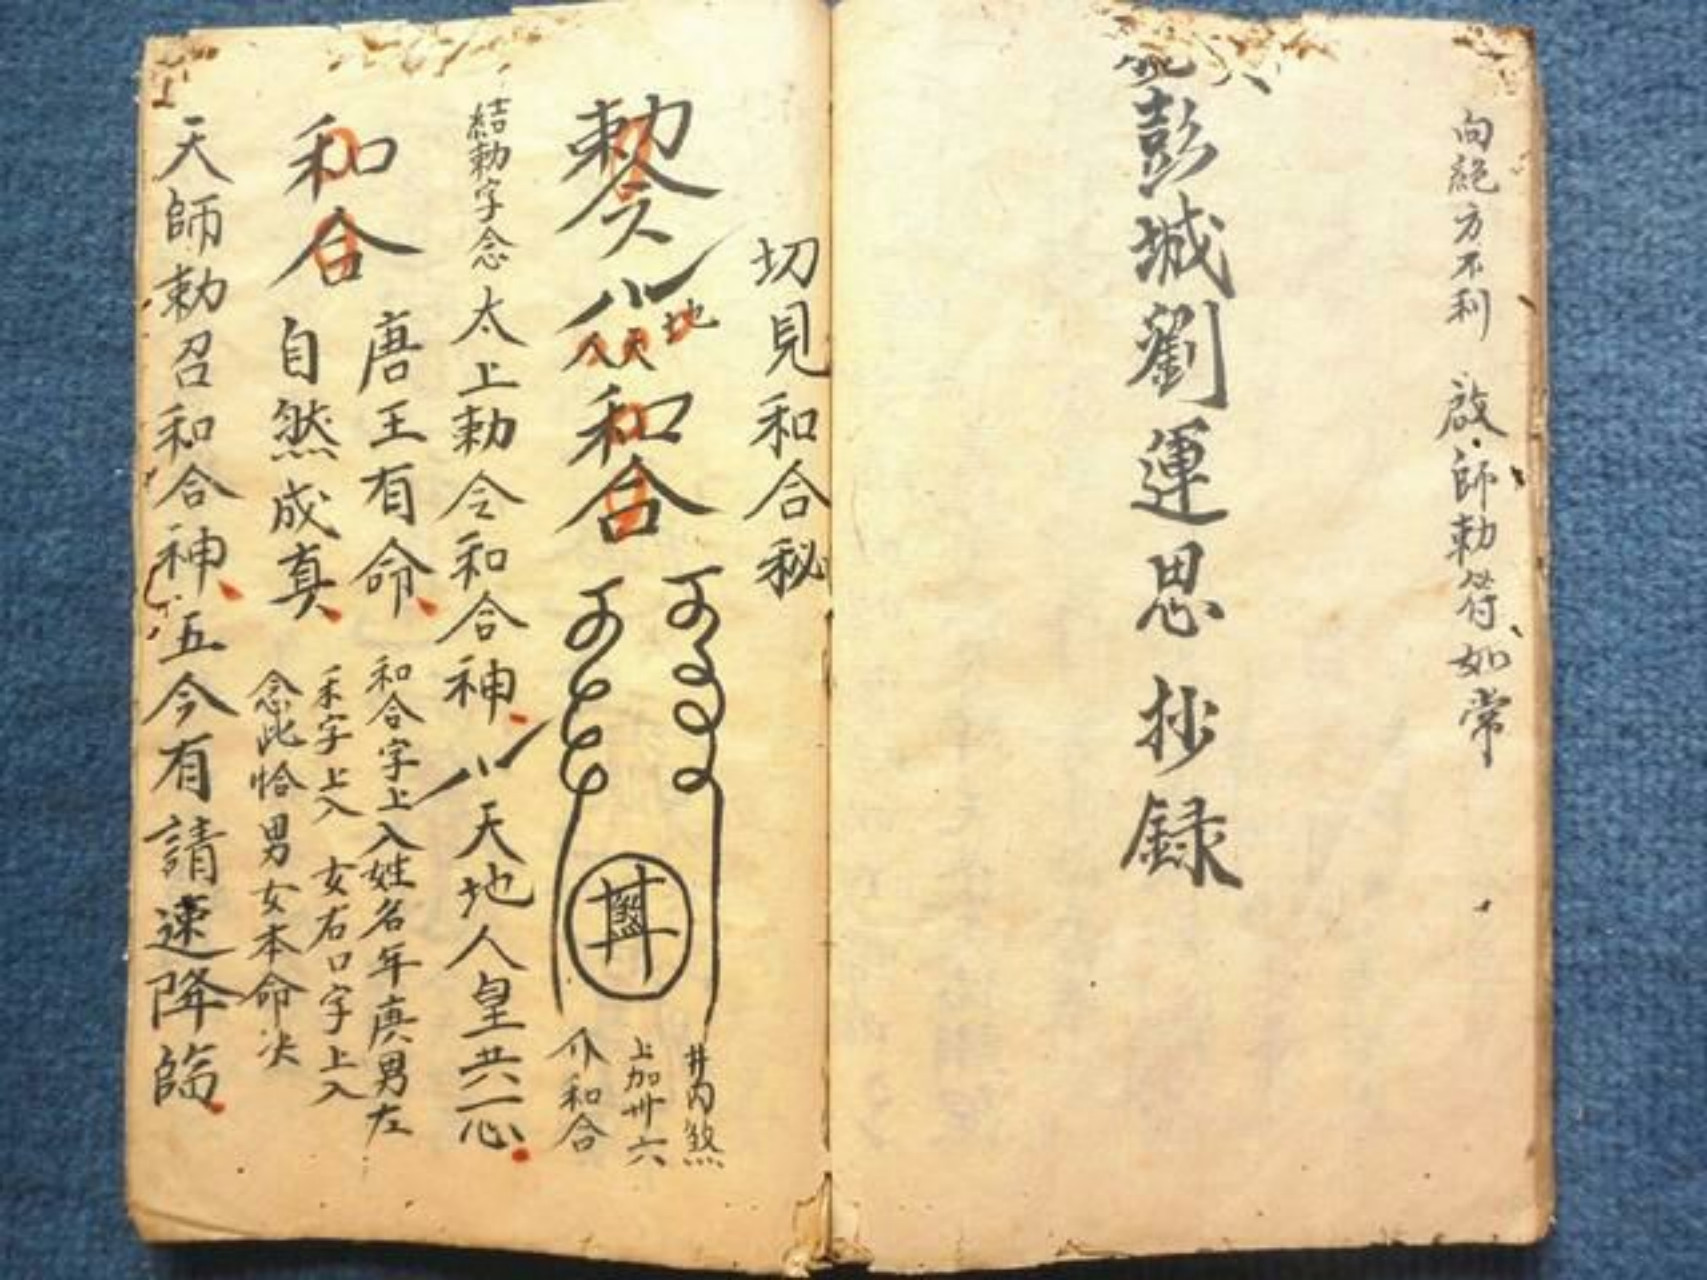 向絕方不利 啟師勅符如常
彭城劉運思抄録
切見和合秘
勅令
地
和合
井內煞
上加卅六
和合
結勅字念 太上勅令和合神 天地人皇共一心
唐王有命 和合字上入姓名年庚男左
禾字上入 女右口字上入
和合 自然成真 念此恰男女本命决
天師勅召和合神 五今有請速降臨